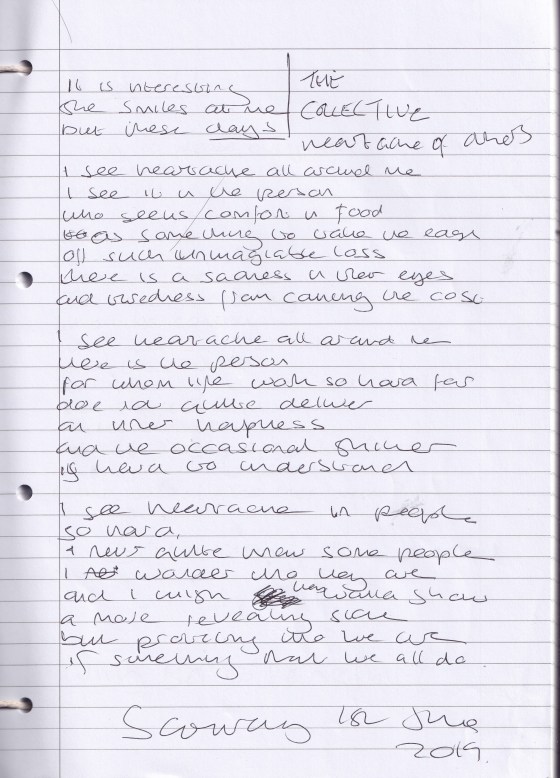 It is interesting
she smiles at me
but these days
THE
COLLECTIVE
heartache of others
I see heartache all around me
I see it in the person
who seeks comfort in food
as something to take the edge
off such unimaginable loss
there is a sadness in their eyes
and tiredness from carrying the cost
I see heartache all around me
here is the person
for whom life work so hard for
doe not quite deliver
on their happiness
and the occasional
is hard to understand
I see heartache in people
so hard,
I never quite know some people
I wonder who they are
and I wish they would show
a more revealing side
but protecting who we are
is something that we all do.
1st June
2019.